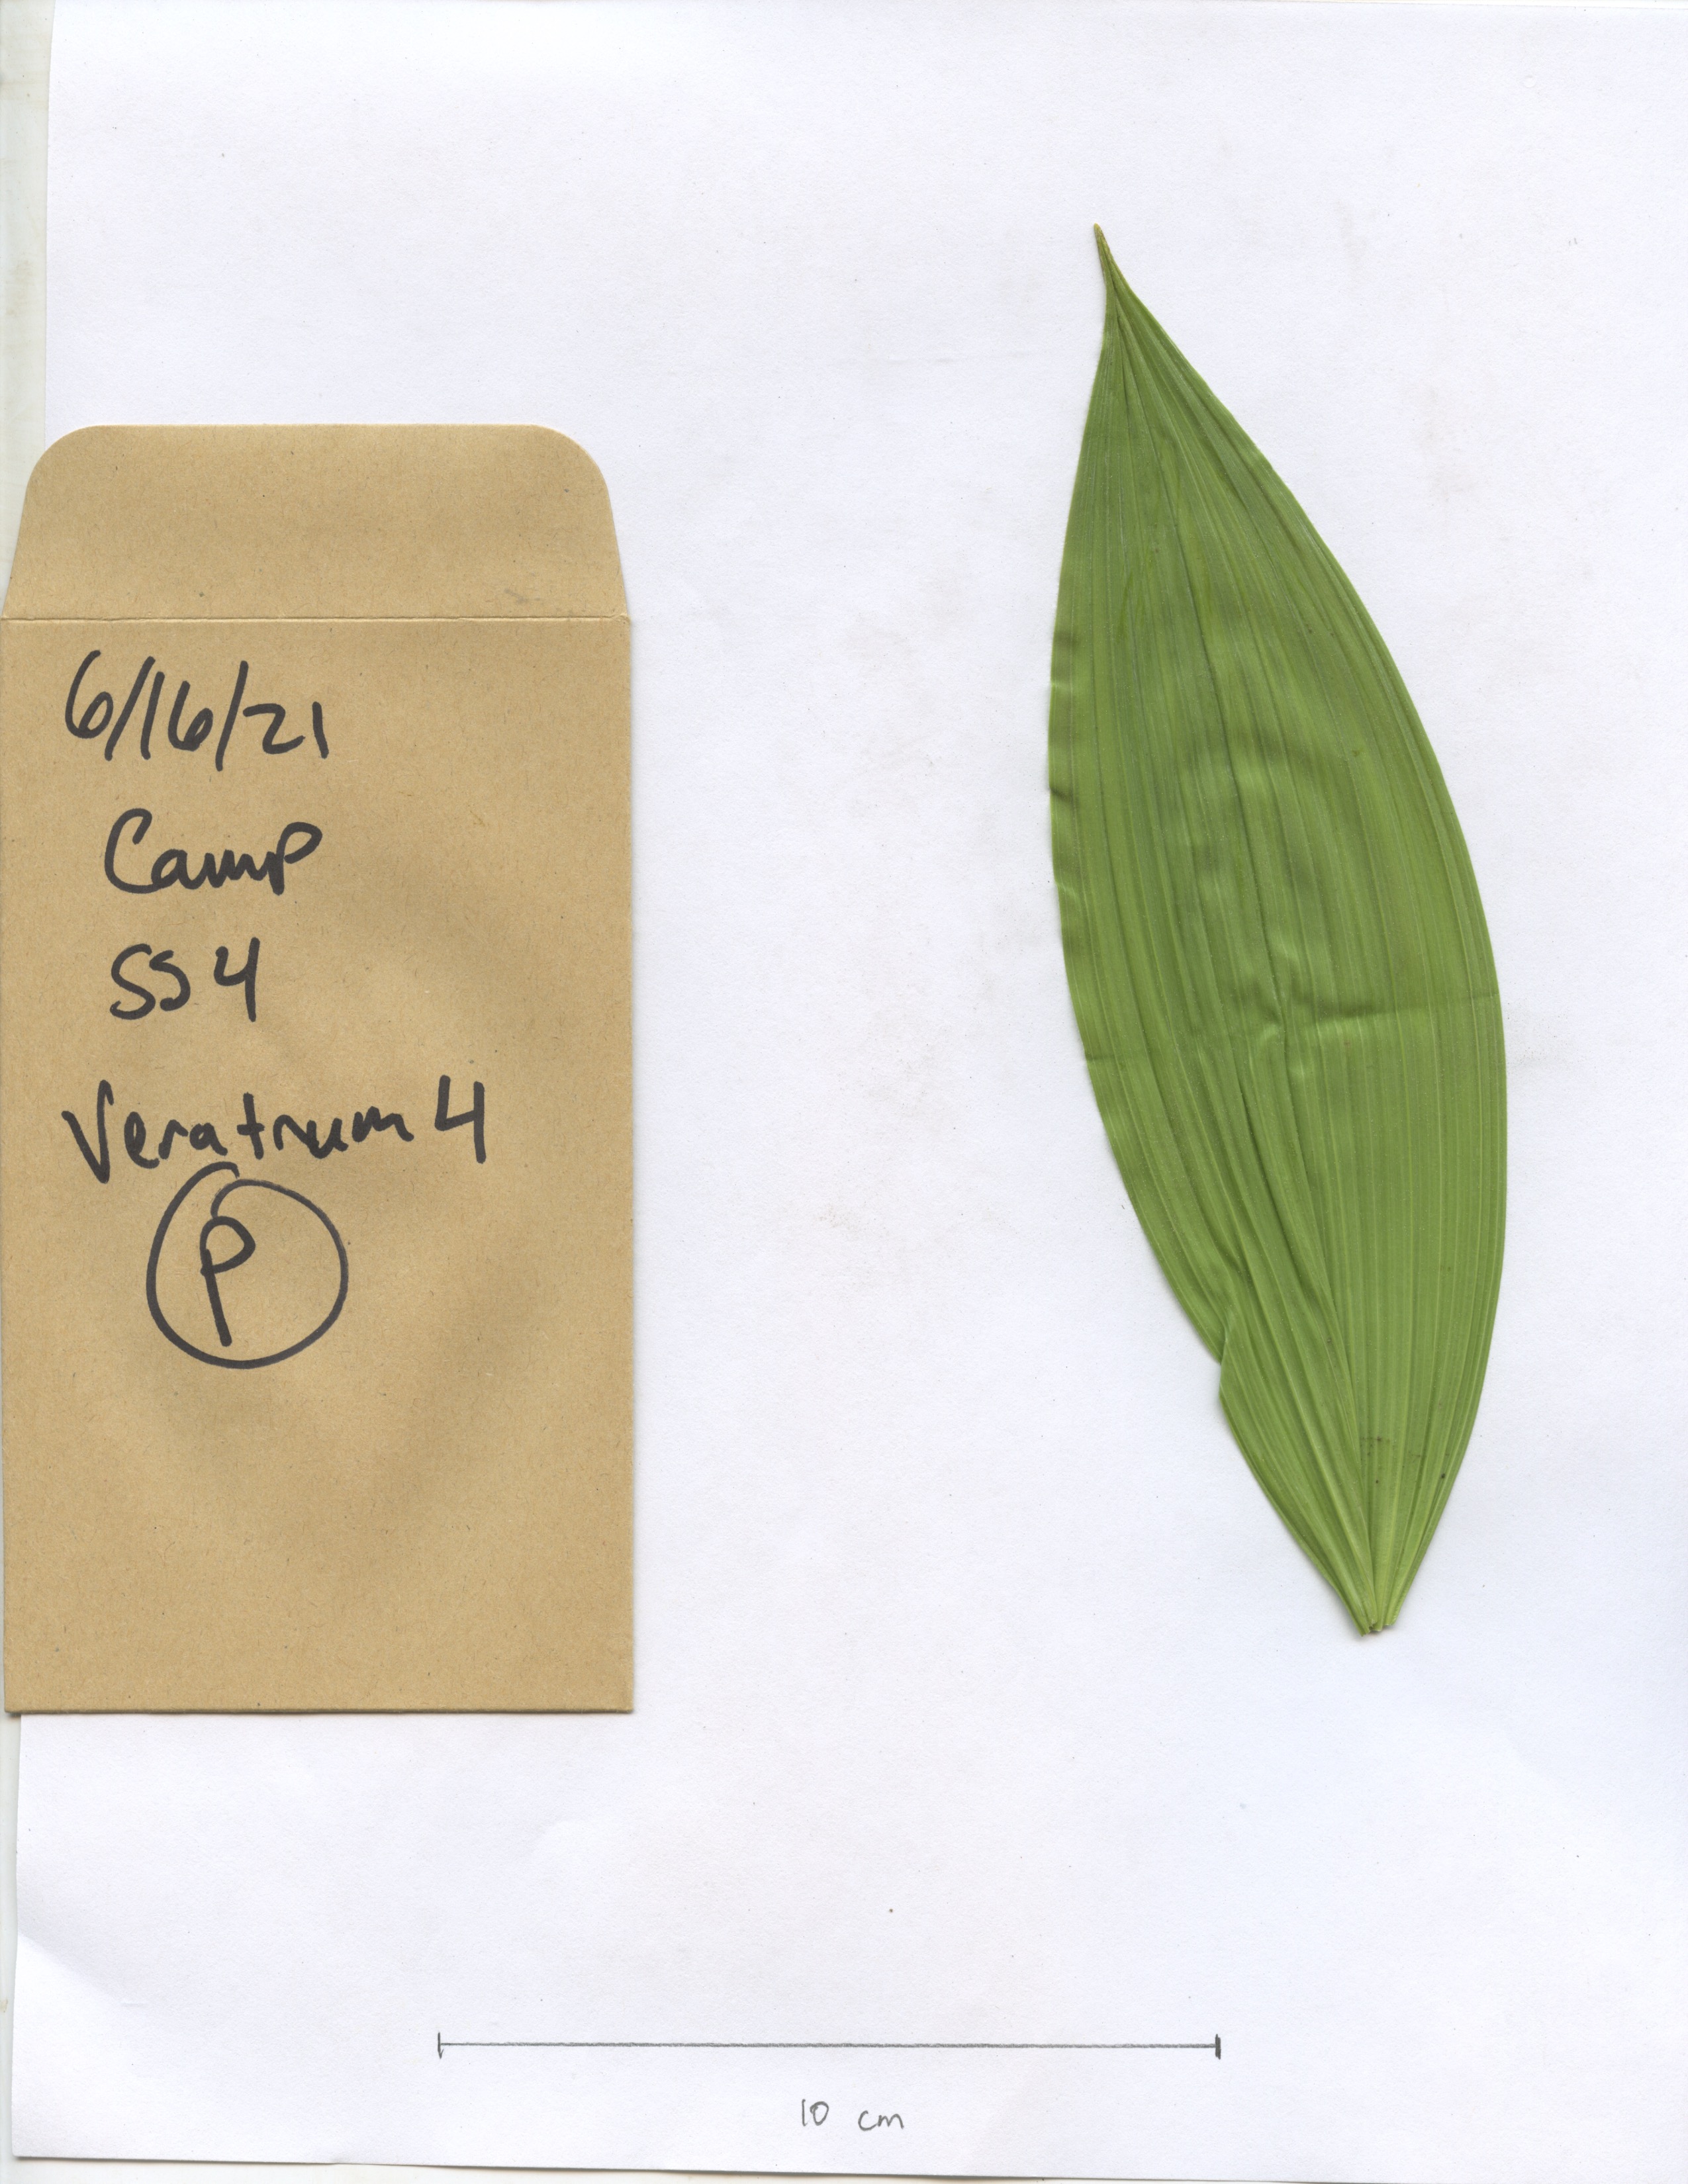 6/16/21
Camp
SS4
Veratrum 4
P
10 cm